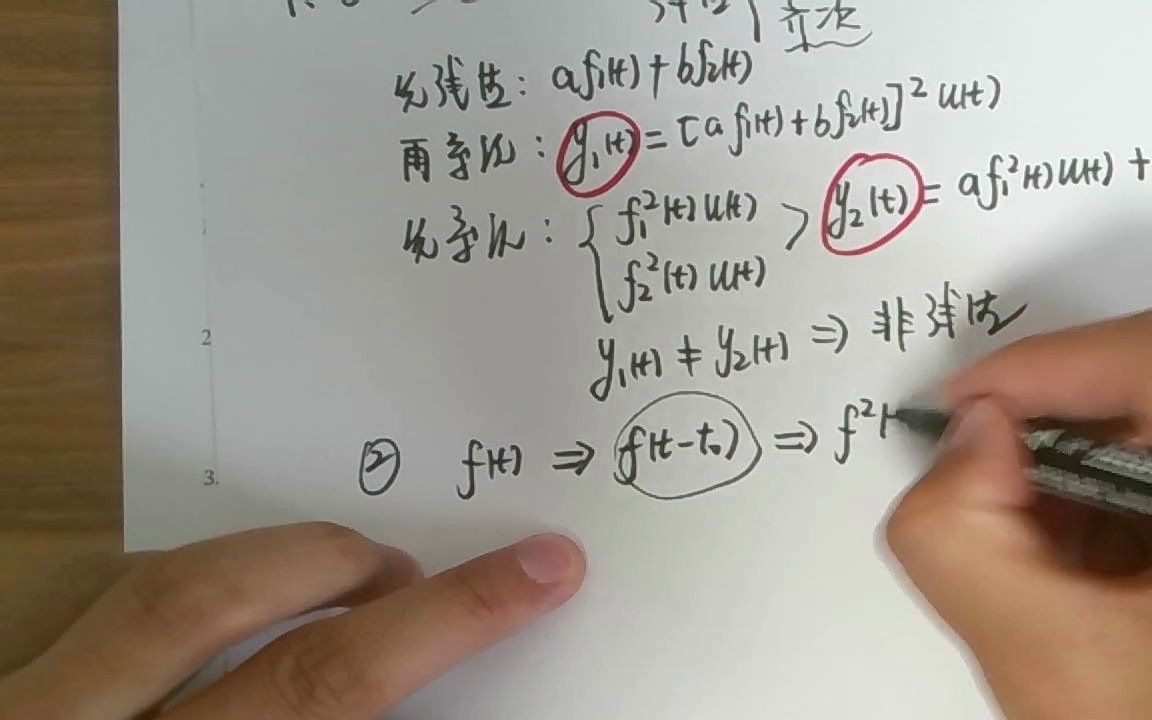 齐次
先线性: af₁(t)+bf₂(t)
再系统: y₁(t)=[af₁(t)+bf₂(t)]²u(t)
先系统: { f₁²(t)u(t) > y₂(t)=af₁²(t)u(t)+
f₂²(t)u(t)
y₁(t)≠y₂(t) ⇒ 非线性
② f(t) ⇒ f(t-t₀) ⇒ f²(
2
3.